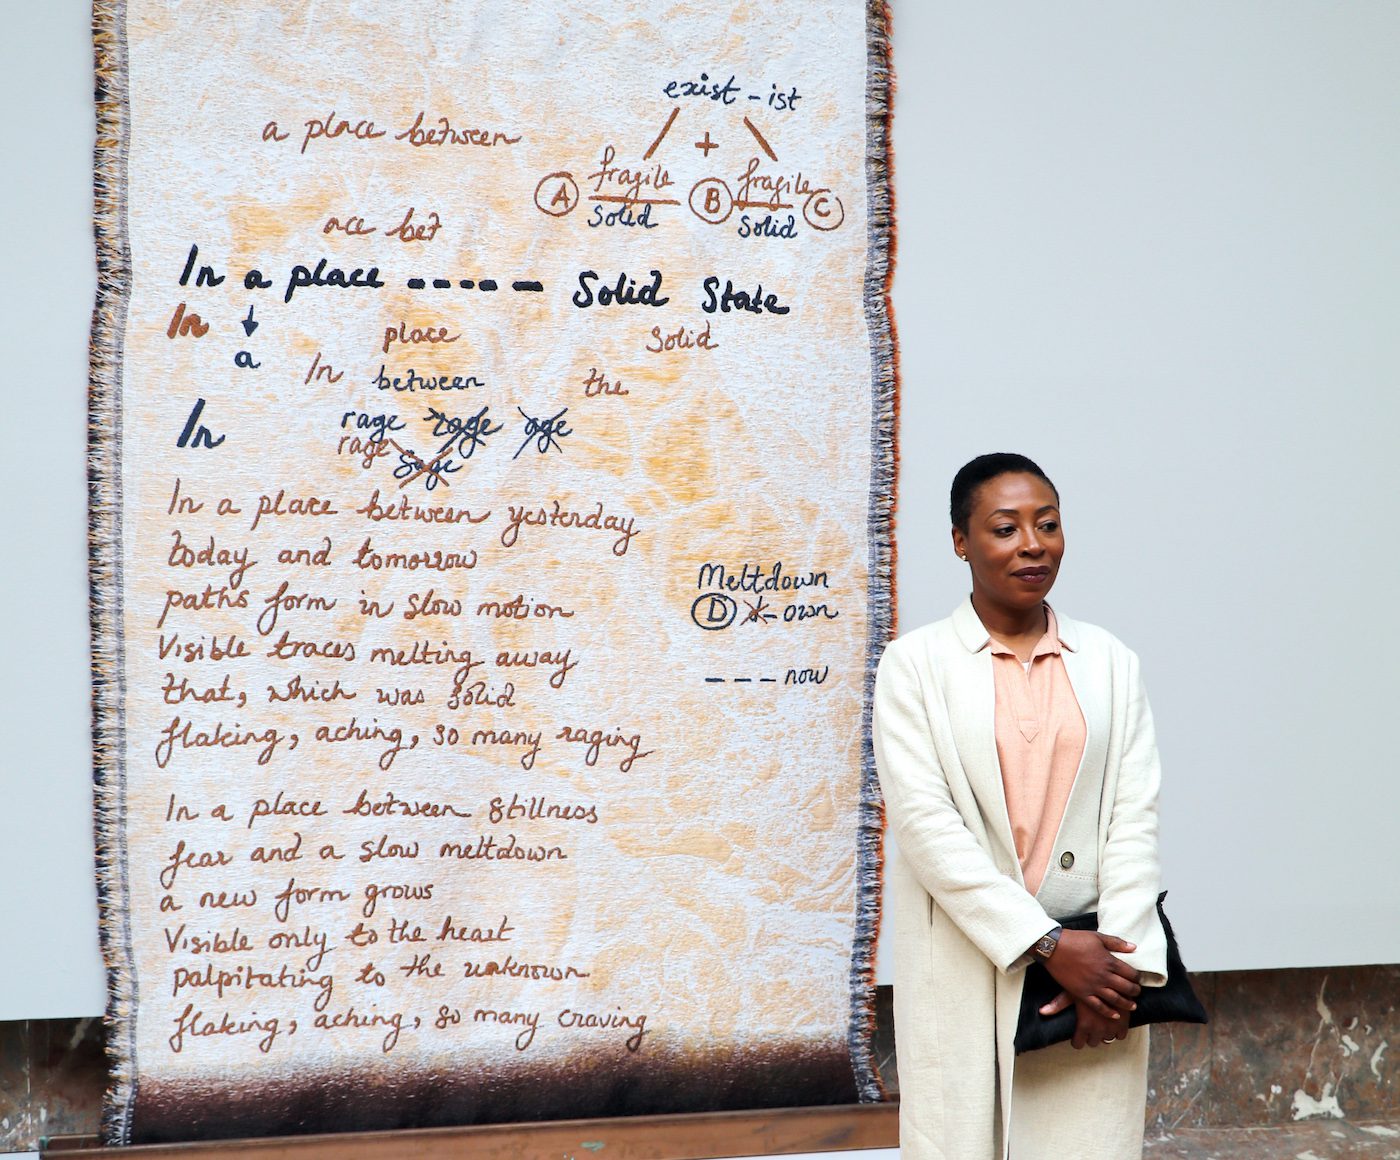 exist - ist
a place between
+
fragile fragile
A B C
solid solid
ace bet
In a place ----- Solid State
In
place solid
a
In between the
In rage rage age
rage sage
In a place between yesterday
today and tomorrow
paths form in slow motion
Meltdown
D d-own
Visible traces melting away
--- now
that, which was solid
flaking, aching, so many raging
In a place between stillness
fear and a slow meltdown
a new form grows
Visible only to the heart
palpitating to the unknown
flaking, aching, so many craving